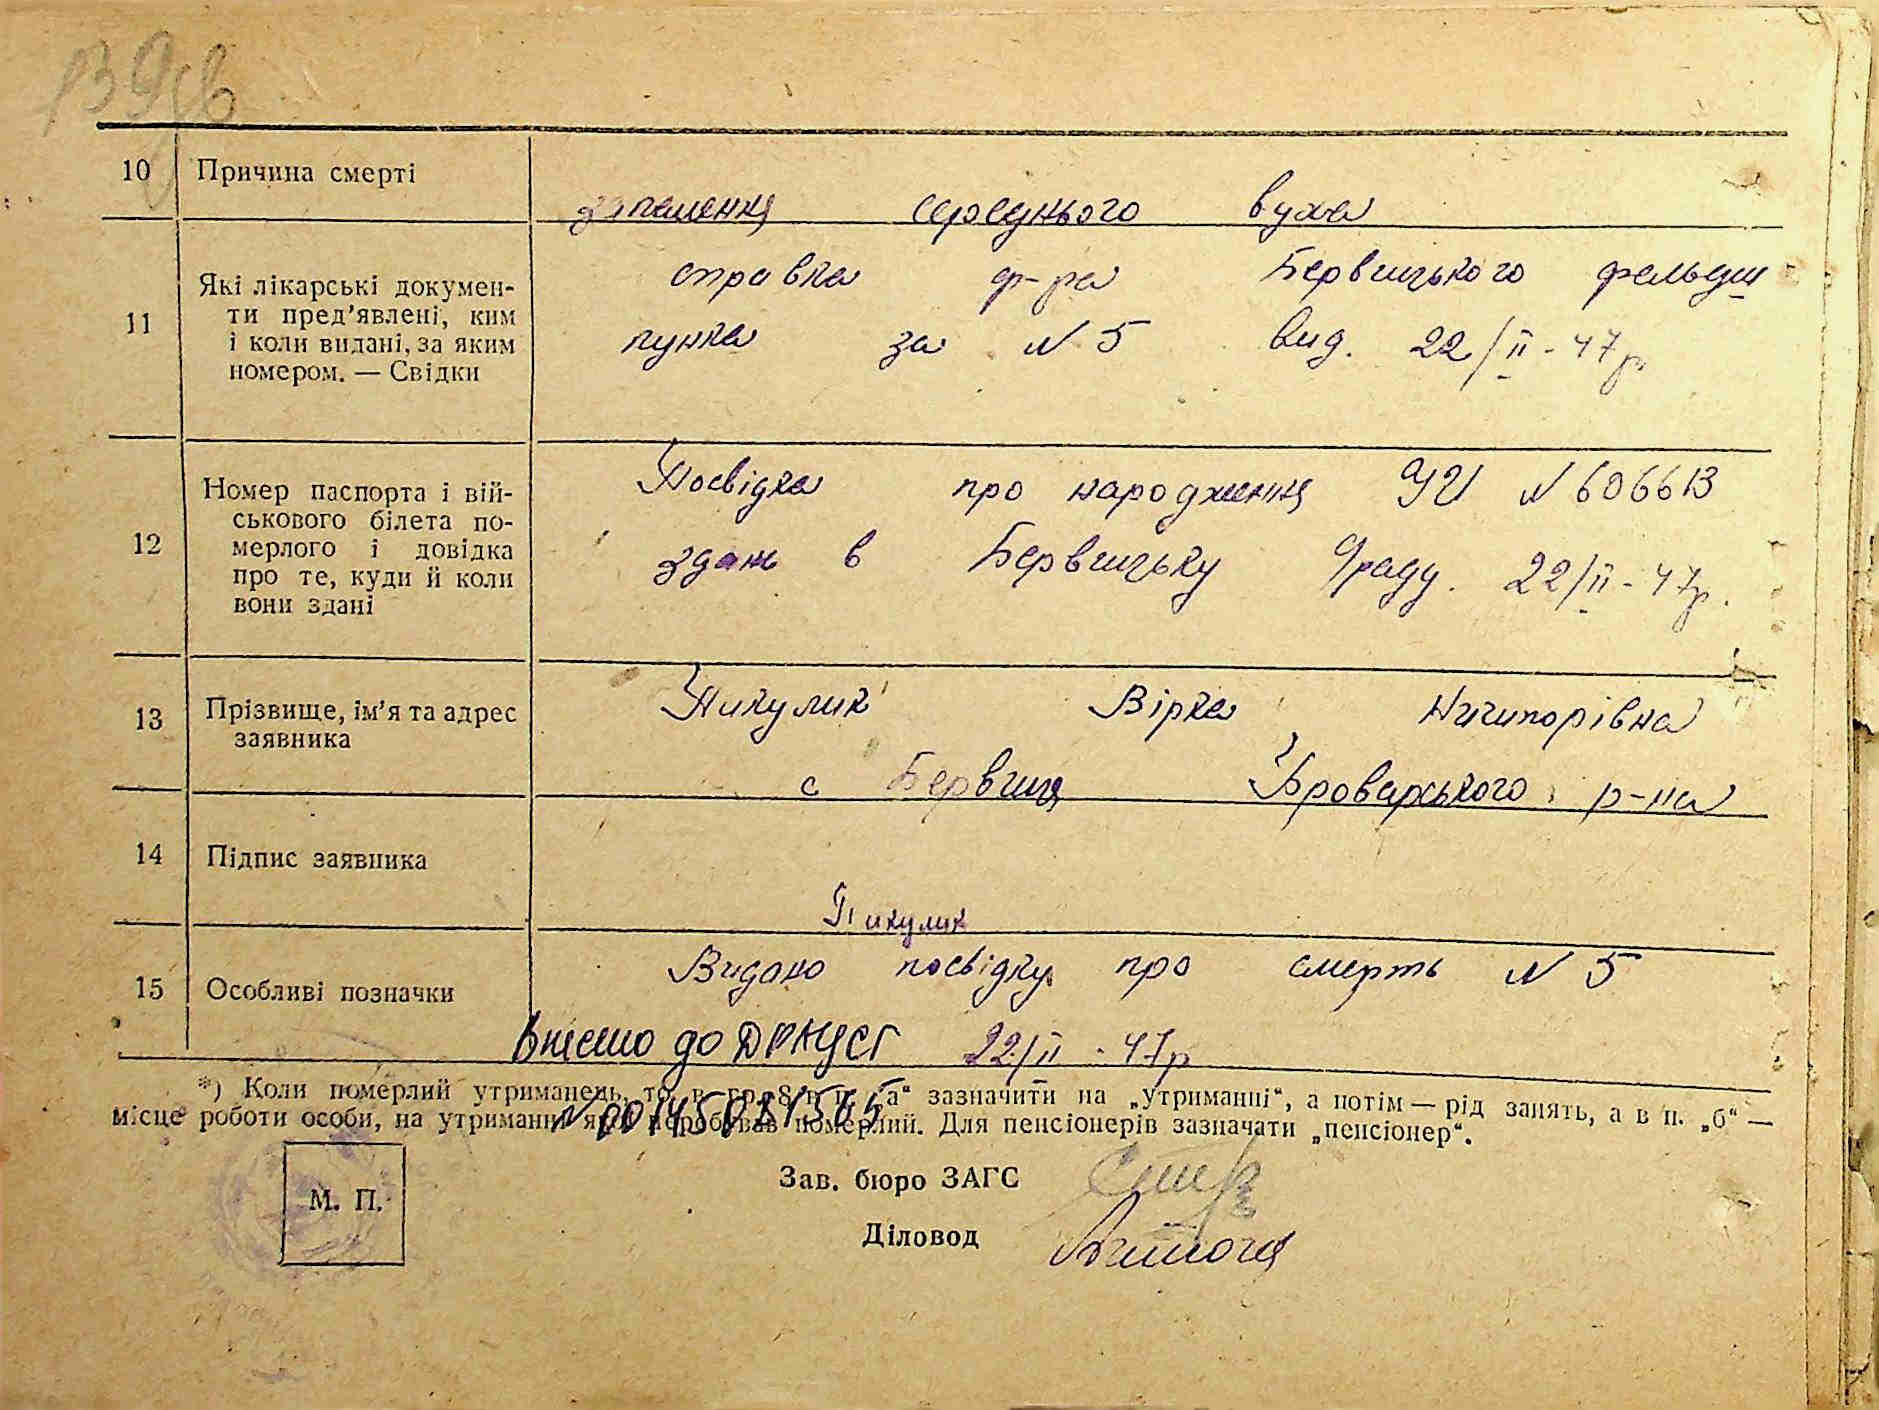 139 зв
10 Причина смерті
запалення середнього вуха
11 Які лікарські докумен-
ти пред'явлені, ким
і коли видані, за яким
номером. — Свідки
справка ф-ра Бервицького фельдш
пункта за N 5 вид. 22/II - 47 р
12 Номер паспорта і вій-
ськового білета по-
мерлого і довідка
про те, куди й коли
вони здані
Посвідка про народження N 606613
здан в Бервицьку с/раду. 22/II - 47р.
13 Прізвище, ім'я та адрес
заявника
Пикулик Вірка Ничипорівна
с Бервиця Броварського р-на
14 Підпис заявника
Пикулик
15 Особливі позначки
Видано посвідку про смерть N 5
22/II - 47р
Внесено до ДРАЦСГ
N 00145031565
*) Коли померлий утриманець, то в гр. 8 в п. „а“ зазначити на „утриманні“, а потім — рід занять, а в п. „б“ —
місце роботи особи, на утриманні якої перебував померлий. Для пенсіонерів зазначати „пенсіонер“.
М. П.
Зав. бюро ЗАГС
Діловод